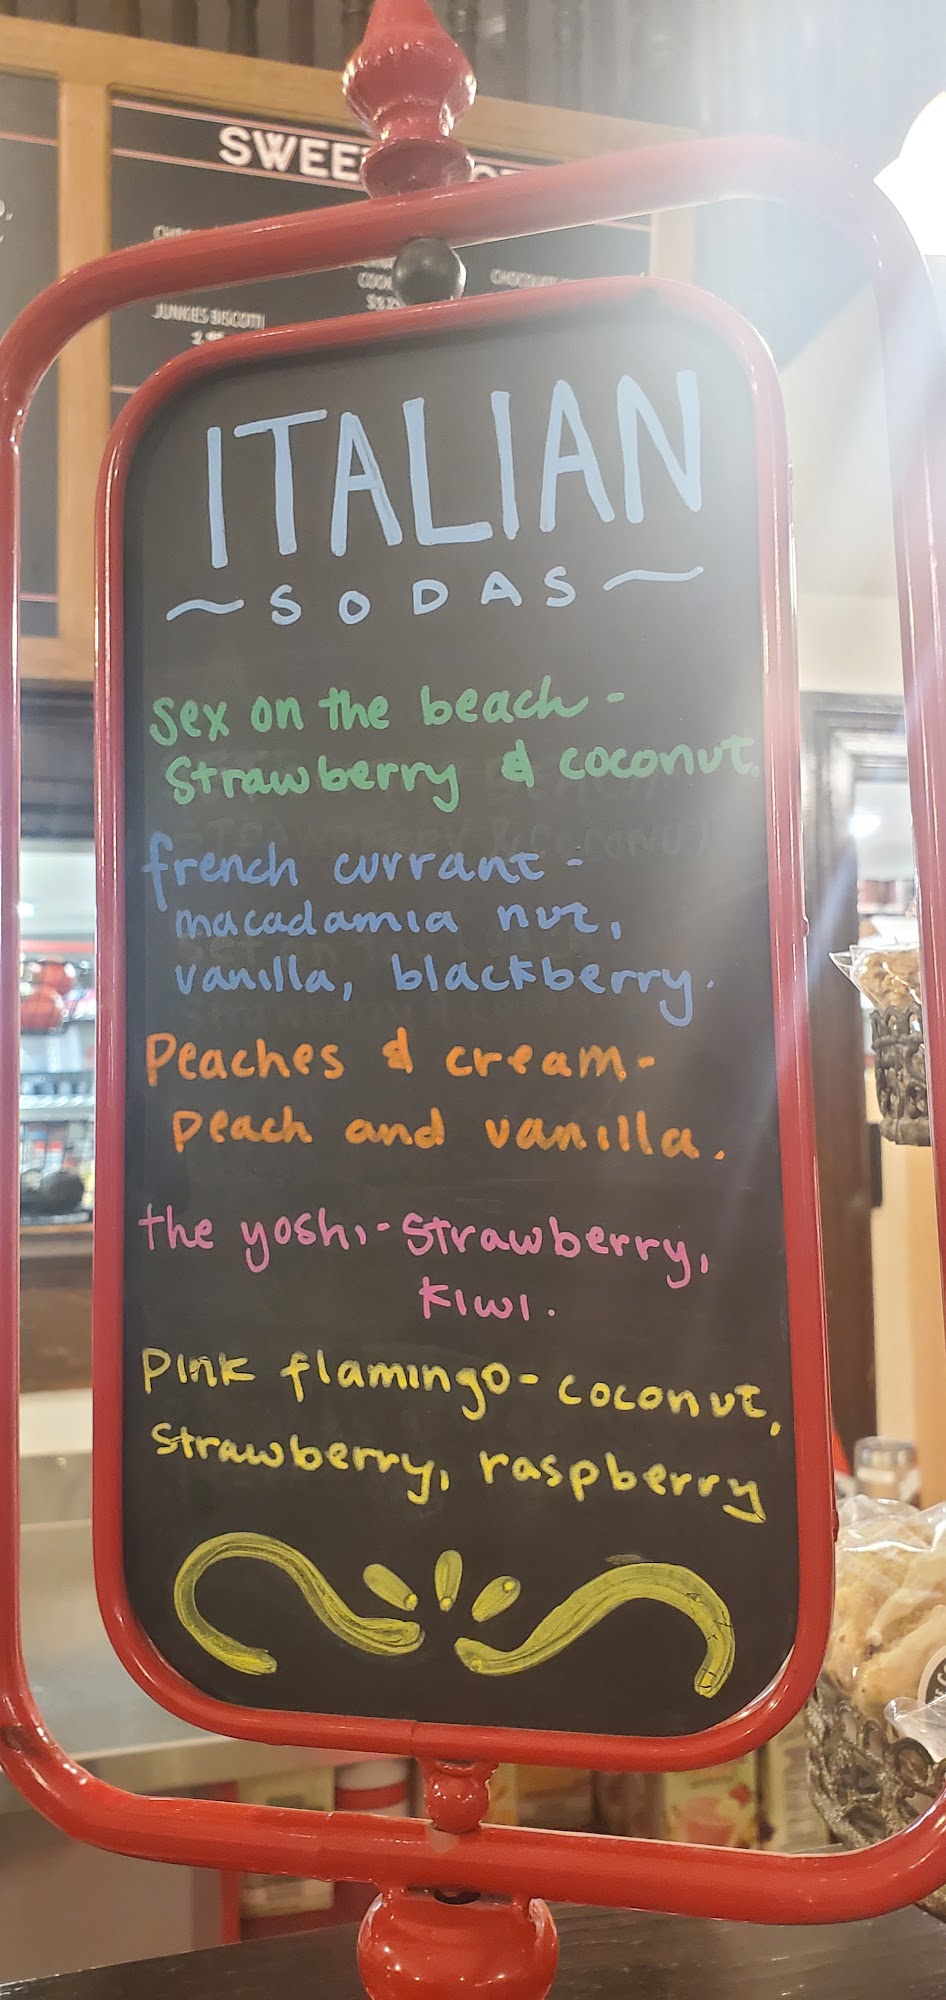 SWEE
JUNKIES BISCOTTI
ITALIAN
~SODAS~
sex on the beach-
strawberry & coconut.
french currant-
macadamia nut,
vanilla, blackberry.
Peaches & cream-
peach and vanilla.
the yoshi-strawberry,
kiwi.
Pink flamingo-coconut,
strawberry, raspberry